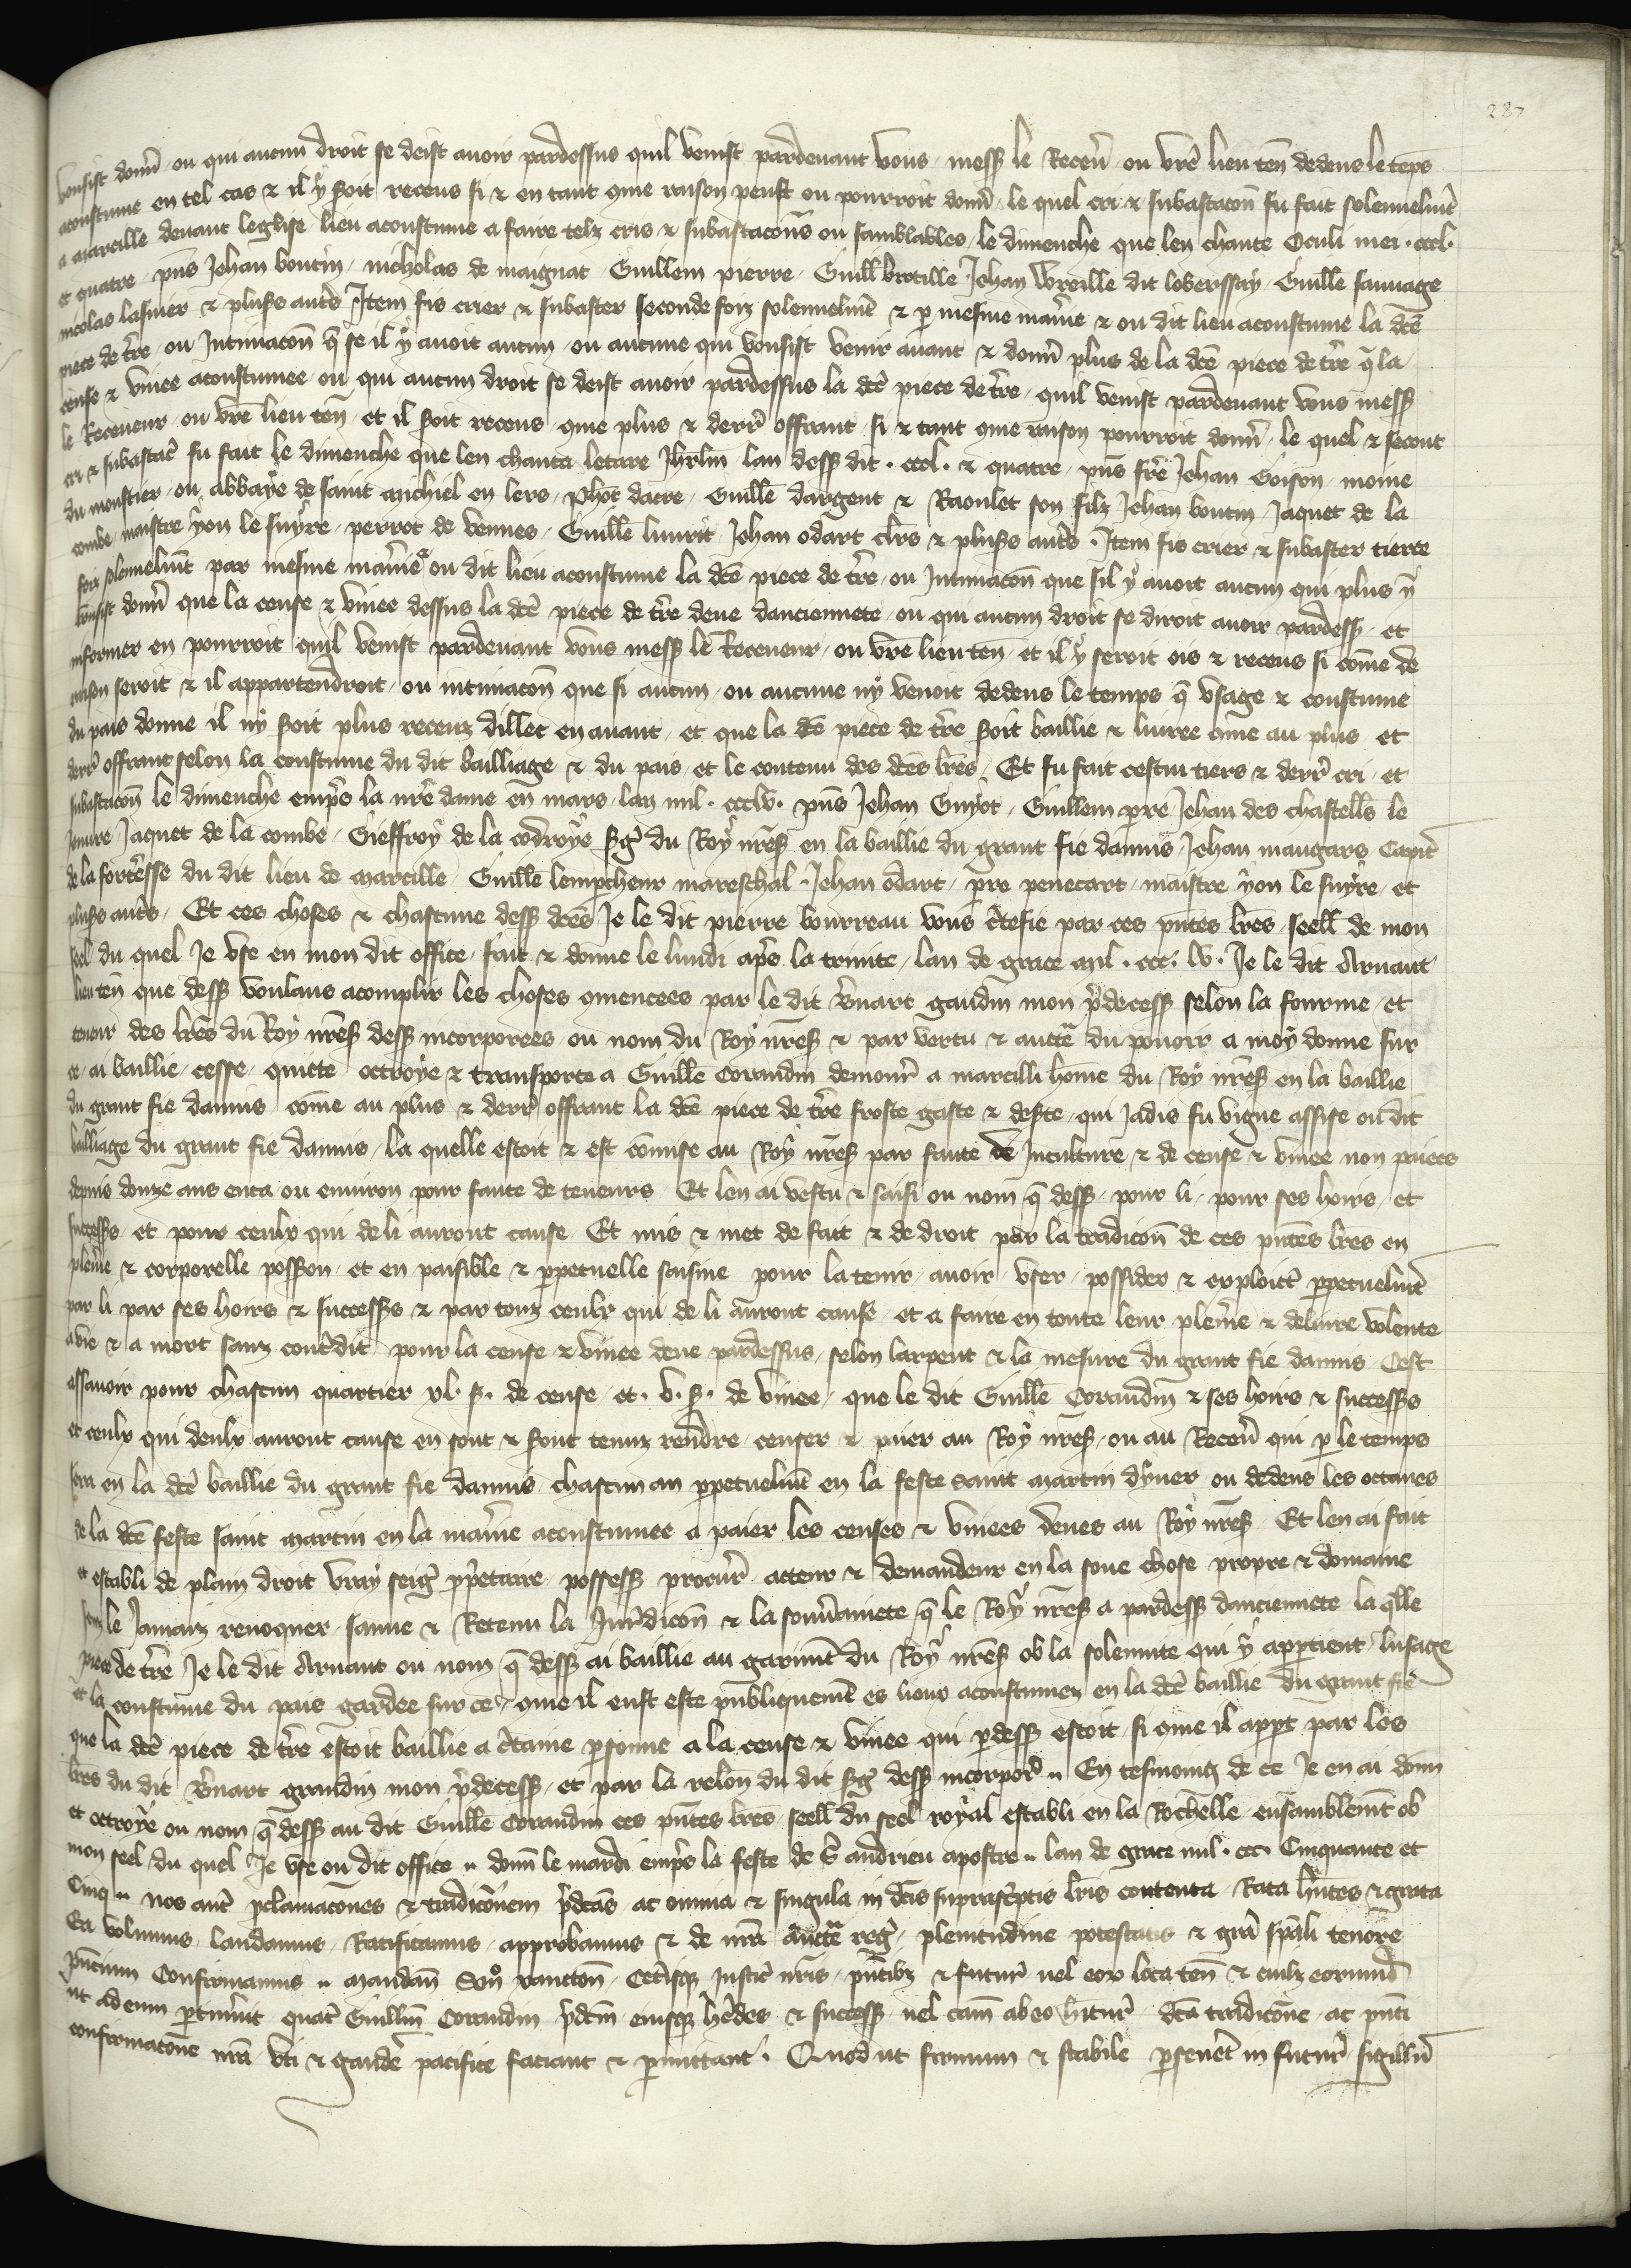 287
vousist donñ ou qui aucun droit se deist auoir pardessus quil venist pardeuant vous mess̄ le Receũ ou vr̃e lieu ten̄ dedens le tẽps
acoustume en tel cas & il y soit receus si & en tant q̃me raison peust ou pourroit donñ le quel cri & subastacõn fu fait solennelmt̃
a marcille deuant leglise lieu acoustume a faire telz cris & subastacõns ou samblables le dimenche que len chante Oculi mei . cccl.
et quatre pñs Jehan boutin nicholas de maignat Guillem pierre Guill̃ brocille Jehan Voreille dit loberssay Guille sauuage
nicolas lasnier & plusrs autr̃s Item fis crier & subaster seconde foiz solennelmt̃ & p̱ mesme maniẽ & ou dit lieu acoustume la dc̃e
piece de tr̃e ou Intimacõn q̃ se il y auoit aucun ou aucune qui vousist venir auant & donñ plus de la dc̃e piece de tr̃e q̃ la
cense & vinee acoustumee ou qui aucun droit se deist auoir pardessus la dc̃e piece de tr̃e quil venist pardeuant vous mess̄
le Receueur ou vr̃e lieu ten̄ et il soit receus q̃me plus & derr̃ offrant si & tant q̃me raison pourroit donñ le quel & secont
cri & subastac̃ fu fait le dimenche que len chanta letare Jhrlm̃ lan dess̄ dit . cccl. & quatre pñs fr̃e Jehan Goison moine
du monstier ou abbaye de saint michiel en lers phõt dacre Guille dargent & Raoulet son filz Jehan boutin Jaquet de la
combe maistre yon le suyre perrot de vennes Guille Jehan odart clr̃s & plusrs autr̃s . Item fis crier & subaster tierce
foiz solennelmt̃ par mesme maniẽ ou dit lieu acoustume la dc̃e piece de tr̃e ou Intimacõn que sil y auoit aucun qui plus y
vousist donñ que la cense & vinee dessus la dc̃e piece de tr̃e deue danciennete ou qui aucun droit se diroit auoir pardess̄ et
informer en pourroit quil venist pardeuant vous mess̄ le Receueur ou vr̃e lieu ten̄ et il y seroit ois & receus si cõme de
raison seroit & il appartendroit ou intimacõn que si aucun ou aucune ny venoit dedens le temps q̃ vsage & coustume
du pais donne il ny soit plus receuz dillec en auant et que la dc̃e piece de tr̃e soit baillie & liuree q̃me au plus et
derr̃ offrant selon la coustume du dit bailliage & du pais et le contenu des dc̃es lr̃es . Et fu fait cestui tiers & derr̃ cri et
subastacõn le dimenche empr̃s la nr̃e dame en mars lan mil . ccclv . pñs Jehan Guyot Guillem prẽ Jehan des chastell̃s le
jenure Jaquet de la combe Gieffroy de la codroye sg̃ du Roy nr̃es̄ en la baillie du grant fie daunis Jehan maugars Capit̃
de la fortr̃esse du dit lieu de marcille Guille lempescheur mareschal . Jehan odart prẽ penecart maistre yon le suyre et
plusrs autr̃s Et ces choses & chascune dess̄ dc̃es Je le dit pierre bourreau vous c̃tefie par ces pñtes lr̃es seell̃ de mon
seel du quel Je vse en mon dit office fait & donne le lundi apr̃s la trinite lan de grace mil . ccc . lv . Je le dit Arnaut
lieu ten̄ que dess̄ voulans acomplir les choses q̃mencees par le dit B̃nart gaudin mon p̃decess̄ selon la fourme et
teneur des lr̃es du Roy nr̃es̄ dess̄ incorporees ou nom du Roy nr̃es̄ & par vertu & auct̃e du pouoir a moy donne sur
ce ai baillie cesse quitte octroye & transporte a Guille Coraudin demour̃ a marcilli home du Roy nr̃es̄ en la baillie
du grant fie daunis cõme au plus & derr̃ offrant la dc̃e piece de tr̃e froste gaste & des̃te qui Jadis fu vigne assise ou dit
bailliage du grant fie daunis la quelle estoit & est cõmise au Roy nr̃es̄ par faute de Inculture & de cense & vinee non paiees
depuis douze ans enca ou enuiron pour faute de teneurs Et len ai vestu & saisi ou nom q̃ dess̄ pour li pour ses hoirs et
successrs et pour ceulx qui de li auront cause Et mis & met de fait & de droit par la tradicõn de ces pñtes lr̃es en
pleniẽ & corporelle poss̄on et en paisible & p̱petuelle saisine pour la tenir auoir vser possider & exploict̃ p̱petuelmt̃
par li par ses hoirs & successrs & par touz ceulx qui de li auront cause et a faire en toute leur pleniẽ & deliure volente
a vie & a mort sanz contr̃dit pour la cense & vinee deue pardessus selon larpent & la mesure du grant fie daunis Cest
assauoir pour chascun quartier xl . s . de cense et . v . s . de vinee que le dit Guille Coraudin & ses hoirs & successrs
et ceulx qui deulx auront cause en sont & sont tenuz rendre censer & paier au Roy nr̃es̄ ou au Receũ qui p̱ le temps
sera en la dc̃e baillie du grant fie daunis chascun an p̱petuelmt̃ en la feste saint martin dyuer ou dedens les octaues
de la dc̃e feste saint martin en la maniẽ acoustumee a paier les censes & vinees deues au Roy nr̃es̄ Et len ai fait
et establi de plain droit vray seig̃ p̱p̃etaire possess̄ procur̃ acteur & demandeur en la soue chose propre & domaine
sanz le Jamaiz reuoquer sauue & Retenu la Juridicõn & la souũainete q̃ le Roy nr̃es̄ a pardess̄ danciennete la q̃lle
piece de tr̃e Je le dit Arnaut ou nom q̃ dess̄ ai baillie au garimt̃ du Roy nr̃es̄ ob la solennite qui y appartient lusage
et la coustume du pais gardee sur ce q̃me il eust este publiquemẽt es lieux acoustumez en la dc̃e baillie du grant fie
que la dc̃e piece de tr̃e estoit baillie a c̃taine p̱sonne a la cense & vinee qui p̱dess̄ estoit si q̃me il app̱t par les
lr̃es du dit B̃nart gaudin mon p̃decess̄ et par la relõn du dit sg̃ dess̄ incorpor̃ .. En tesmoing de ce Je en ai donñ
et octroye ou nom q̃ dess̄ au dit Guille Coraudin ces pñtes lr̃es seell̃ du seel royal establi en la Rochelle ensamblemt̃ ob
mon seel du quel Je vse ou dit office .. donñ le mardi empr̃s la feste de s̃ andrieu apostre .. lan de grace mil . ccc . Cinquante et
Cinq .. nos aut̃ p̱clamacões & tradicõnem p̃dc̃as ac omnia & singula in dc̃is suprascr̃ptis lr̃is contenta Rata hñtes & grata
Ea volumus laudamus Ratificamus approbamus & de nr̃a auct̃e reg̃ plenitudine potestatis & gr̃a sp̃ali tenore
pñcium Confirmamus .. mandañ Señ xancton̄ Cet̃isq̃ Justic̃ nr̃is pñtibz & futur̃ uel eor̃ loca ten̄ & cuilz eorumd̃
ut ad eum p̱tinũit quat̃ Guillm̃ Coraudin p̃dc̃m eiusq̃ hẽdes & success̄ uel cam̃ ab eo hitur̃ dc̃a tradicõne ac pñti
confirmacõne nr̃a vti & gaudẽ pacifice faciant & p̱mittant . Quod ut firmum & stabile p̱seuẽt in futur̃ sigillũ